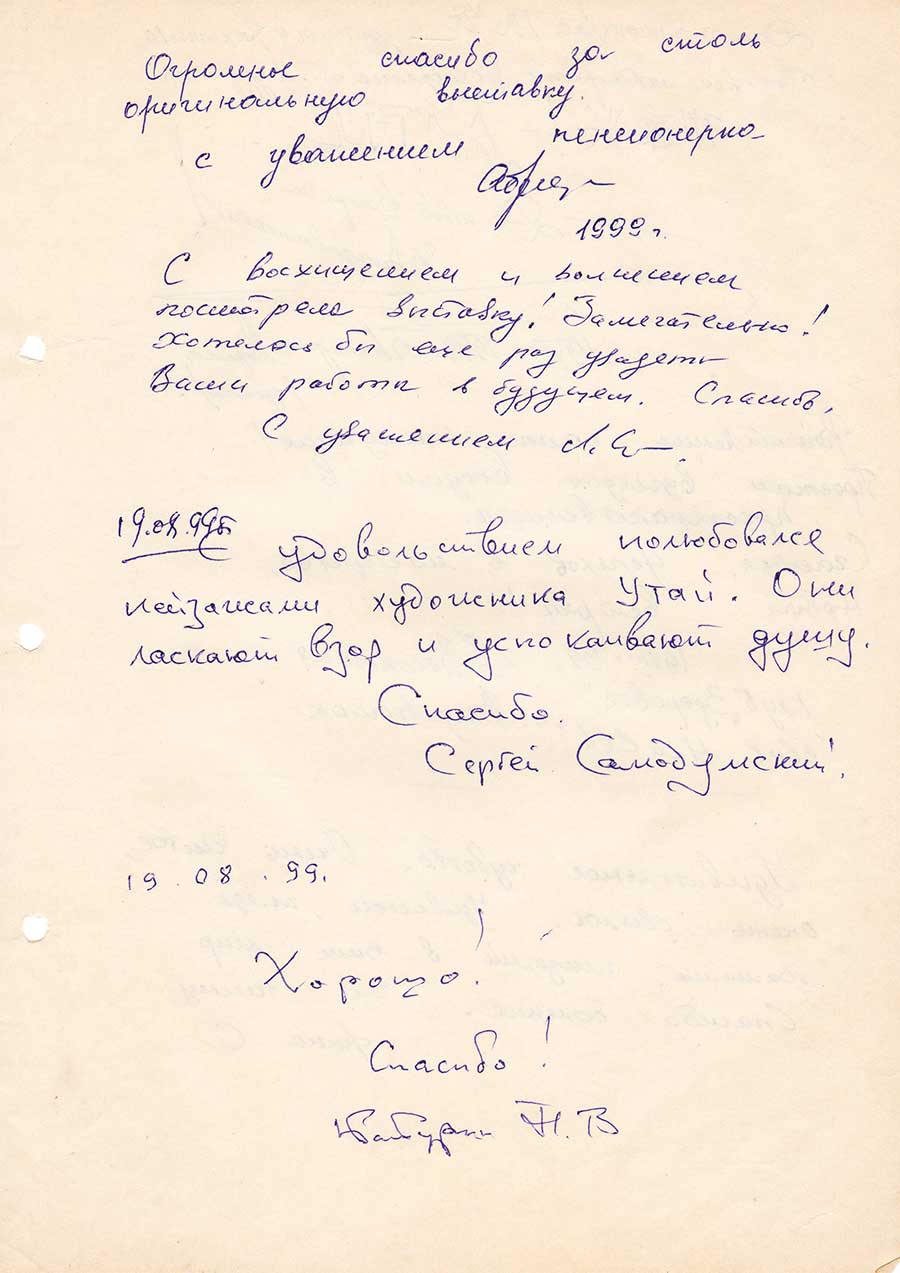 Огромные спасибо за столь
оригинальную выставку.
с уважением пенсионерка
1999 г.
С восхищением и волнением
посмотрела выставку! Замечательно!
Хотелось бы еще раз увидеть
Ваши работы в будущем. Спасибо,
С уважением
19.08.99г. С удовольствием полюбовался
пейзажами художника Утай. Они
ласкают взор и успокаивают душу.
Спасибо.
Сергей Самодумский.
19.08.99.
Хорошо!
Спасибо!
Н.В